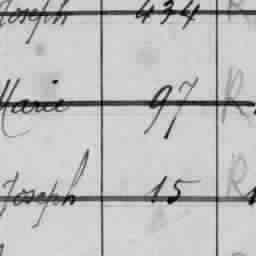 Joseph 434 R
Marie 97 R
Joseph 15 R